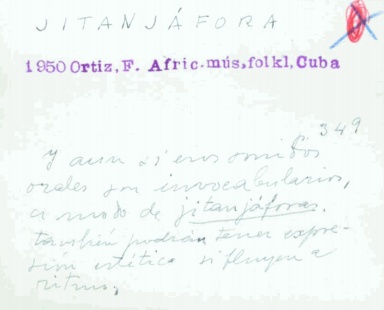 JITANJÁFORA
1950 Ortiz, F. Afric. mús, folkl, Cuba
p. 349
Y aun si esos sonidos
orales son invocabularios,
a modo de jitanjáforas.
también podrán tener expre-
sión estética si fluyen a
ritmo,